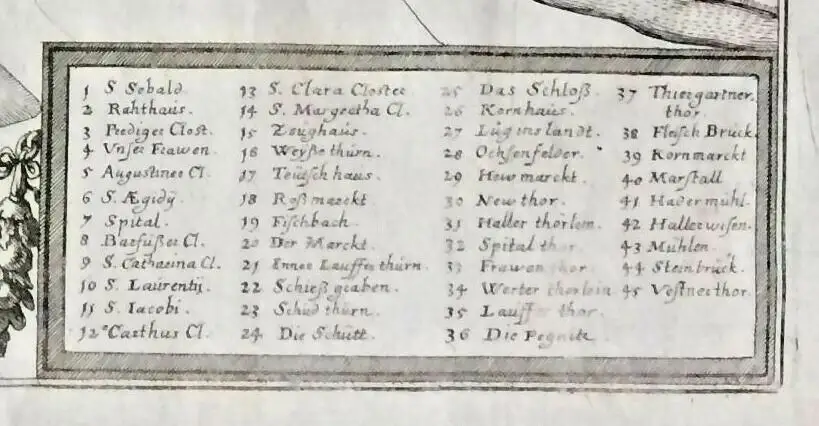 1 S Sebald.
2 Rahthaus.
3 Prediger Clost.
4 Vnser Frawen.
5 Augustiner Cl.
6 S. Ægidÿ
7 Spital.
8 Barfüßer Cl.
9 S. Catharina Cl.
10 S. Laurentij.
11 S. Iacobi.
12 Carthus Cl.
13 S. Clara Closter
14 S. Margretha Cl.
15 Zeughaus.
16 Weyße thürn.
17 Teütsch haus.
18 Roß marckt
19 Fischbach.
20 Der Marckt.
21 Inner Lauffer thürn.
22 Schieß graben.
23 Schüd thürn.
24 Die Schütt.
25 Das Schloß.
26 Kornhaus.
27 Lug ins landt.
28 Ochsenfelder.
29 Hew marckt.
30 New thor.
31 Haller thörlein.
32 Spital thor.
33 Frawen thor.
34 Werter thorlein
35 Lauffer thor.
36 Die Pegnitz
37 Thiergartner
thor.
38 Fleisch Bruck.
39 Kornmarckt
40 Marstall
41 Hadermühl.
42 Hallerwisen.
43 Mühlen.
44 Steinbrück.
45 Vestnerthor.